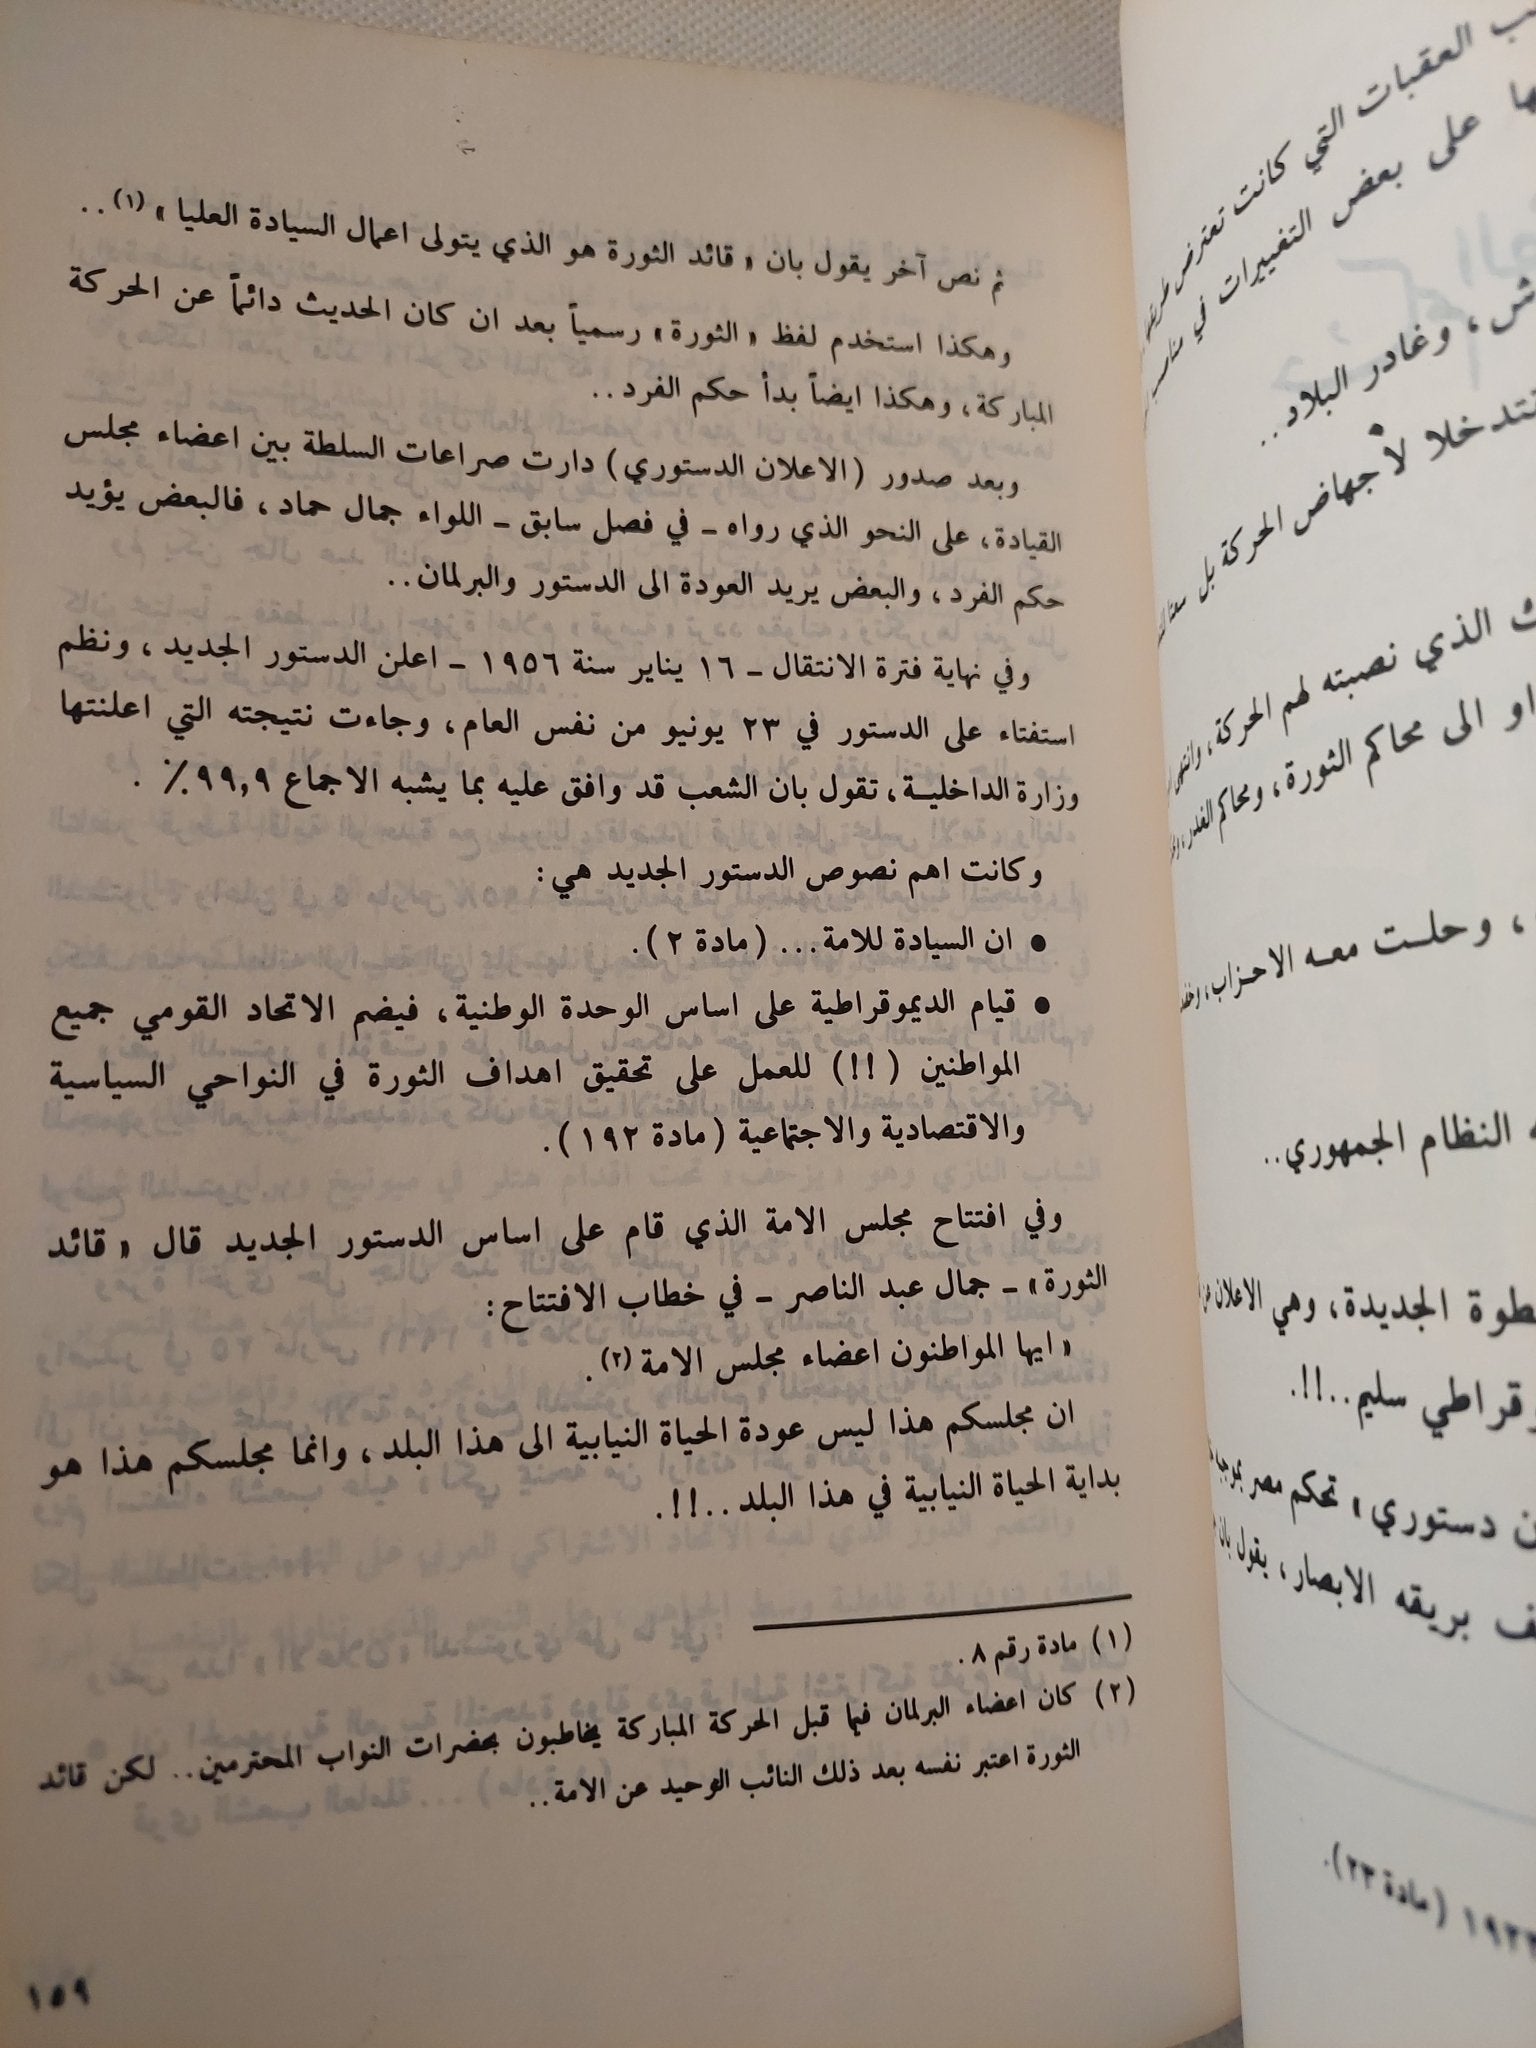 ب العقبات التي كانت تعترض
ها على بعض التغييرات في
وغادر البلاد..
تتدخلا لأجهاض الحركة بل
ك الذي نصبته لهم الحركة،
او الى محاكم الثورة، ومحاكم الغدر،
، وحلت معه الاحزاب،
ه النظام الجمهوري..
طوة الجديدة، وهي الاعلان
وقراطي سليم..!!.
ن دستوري» تحكم مصر بموجبه
ف بريقه الابصار، يقول بان
(مادة ٢٣).
ثم نص آخر يقول بان «قائد الثورة هو الذي يتولى اعمال السيادة العليا» (١)..
وهكذا استخدم لفظ «الثورة» رسمياً بعد ان كان الحديث دائماً عن الحركة
المباركة، وهكذا ايضاً بدأ حكم الفرد..
وبعد صدور (الاعلان الدستوري) دارت صراعات السلطة بين اعضاء مجلس
القيادة، على النحو الذي رواه ـ في فصل سابق ـ اللواء جمال حماد، فالبعض يؤيد
حكم الفرد، والبعض يريد العودة الى الدستور والبرلمان..
وفي نهاية فترة الانتقال ـ ١٦ يناير سنة ١٩٥٦ ـ اعلن الدستور الجديد، ونظم
استفتاء على الدستور في ٢٣ يونيو من نفس العام، وجاءت نتيجته التي اعلنتها
وزارة الداخلية، تقول بان الشعب قد وافق عليه بما يشبه الاجماع ٩٩,٩٪ .
وكانت اهم نصوص الدستور الجديد هي:
● ان السيادة للامة... (مادة ٢).
● قيام الديموقراطية على اساس الوحدة الوطنية، فيضم الاتحاد القومي جميع
المواطنين (!!) للعمل على تحقيق اهداف الثورة في النواحي السياسية
والاقتصادية والاجتماعية (مادة ١٩٢).
وفي افتتاح مجلس الامة الذي قام على اساس الدستور الجديد قال «قائد
الثورة» ـ جمال عبد الناصر ـ في خطاب الافتتاح:
«ايها المواطنون اعضاء مجلس الامة (٢).
ان مجلسكم هذا ليس عودة الحياة النيابية الى هذا البلد، وانما مجلسكم هذا هو
بداية الحياة النيابية في هذا البلد..!!.
(١) مادة رقم ٨.
(٢) كان اعضاء البرلمان فيما قبل الحركة المباركة يخاطبون بحضرات النواب المحترمين.. لكن قائد
الثورة اعتبر نفسه بعد ذلك النائب الوحيد عن الامة..
١٥٩